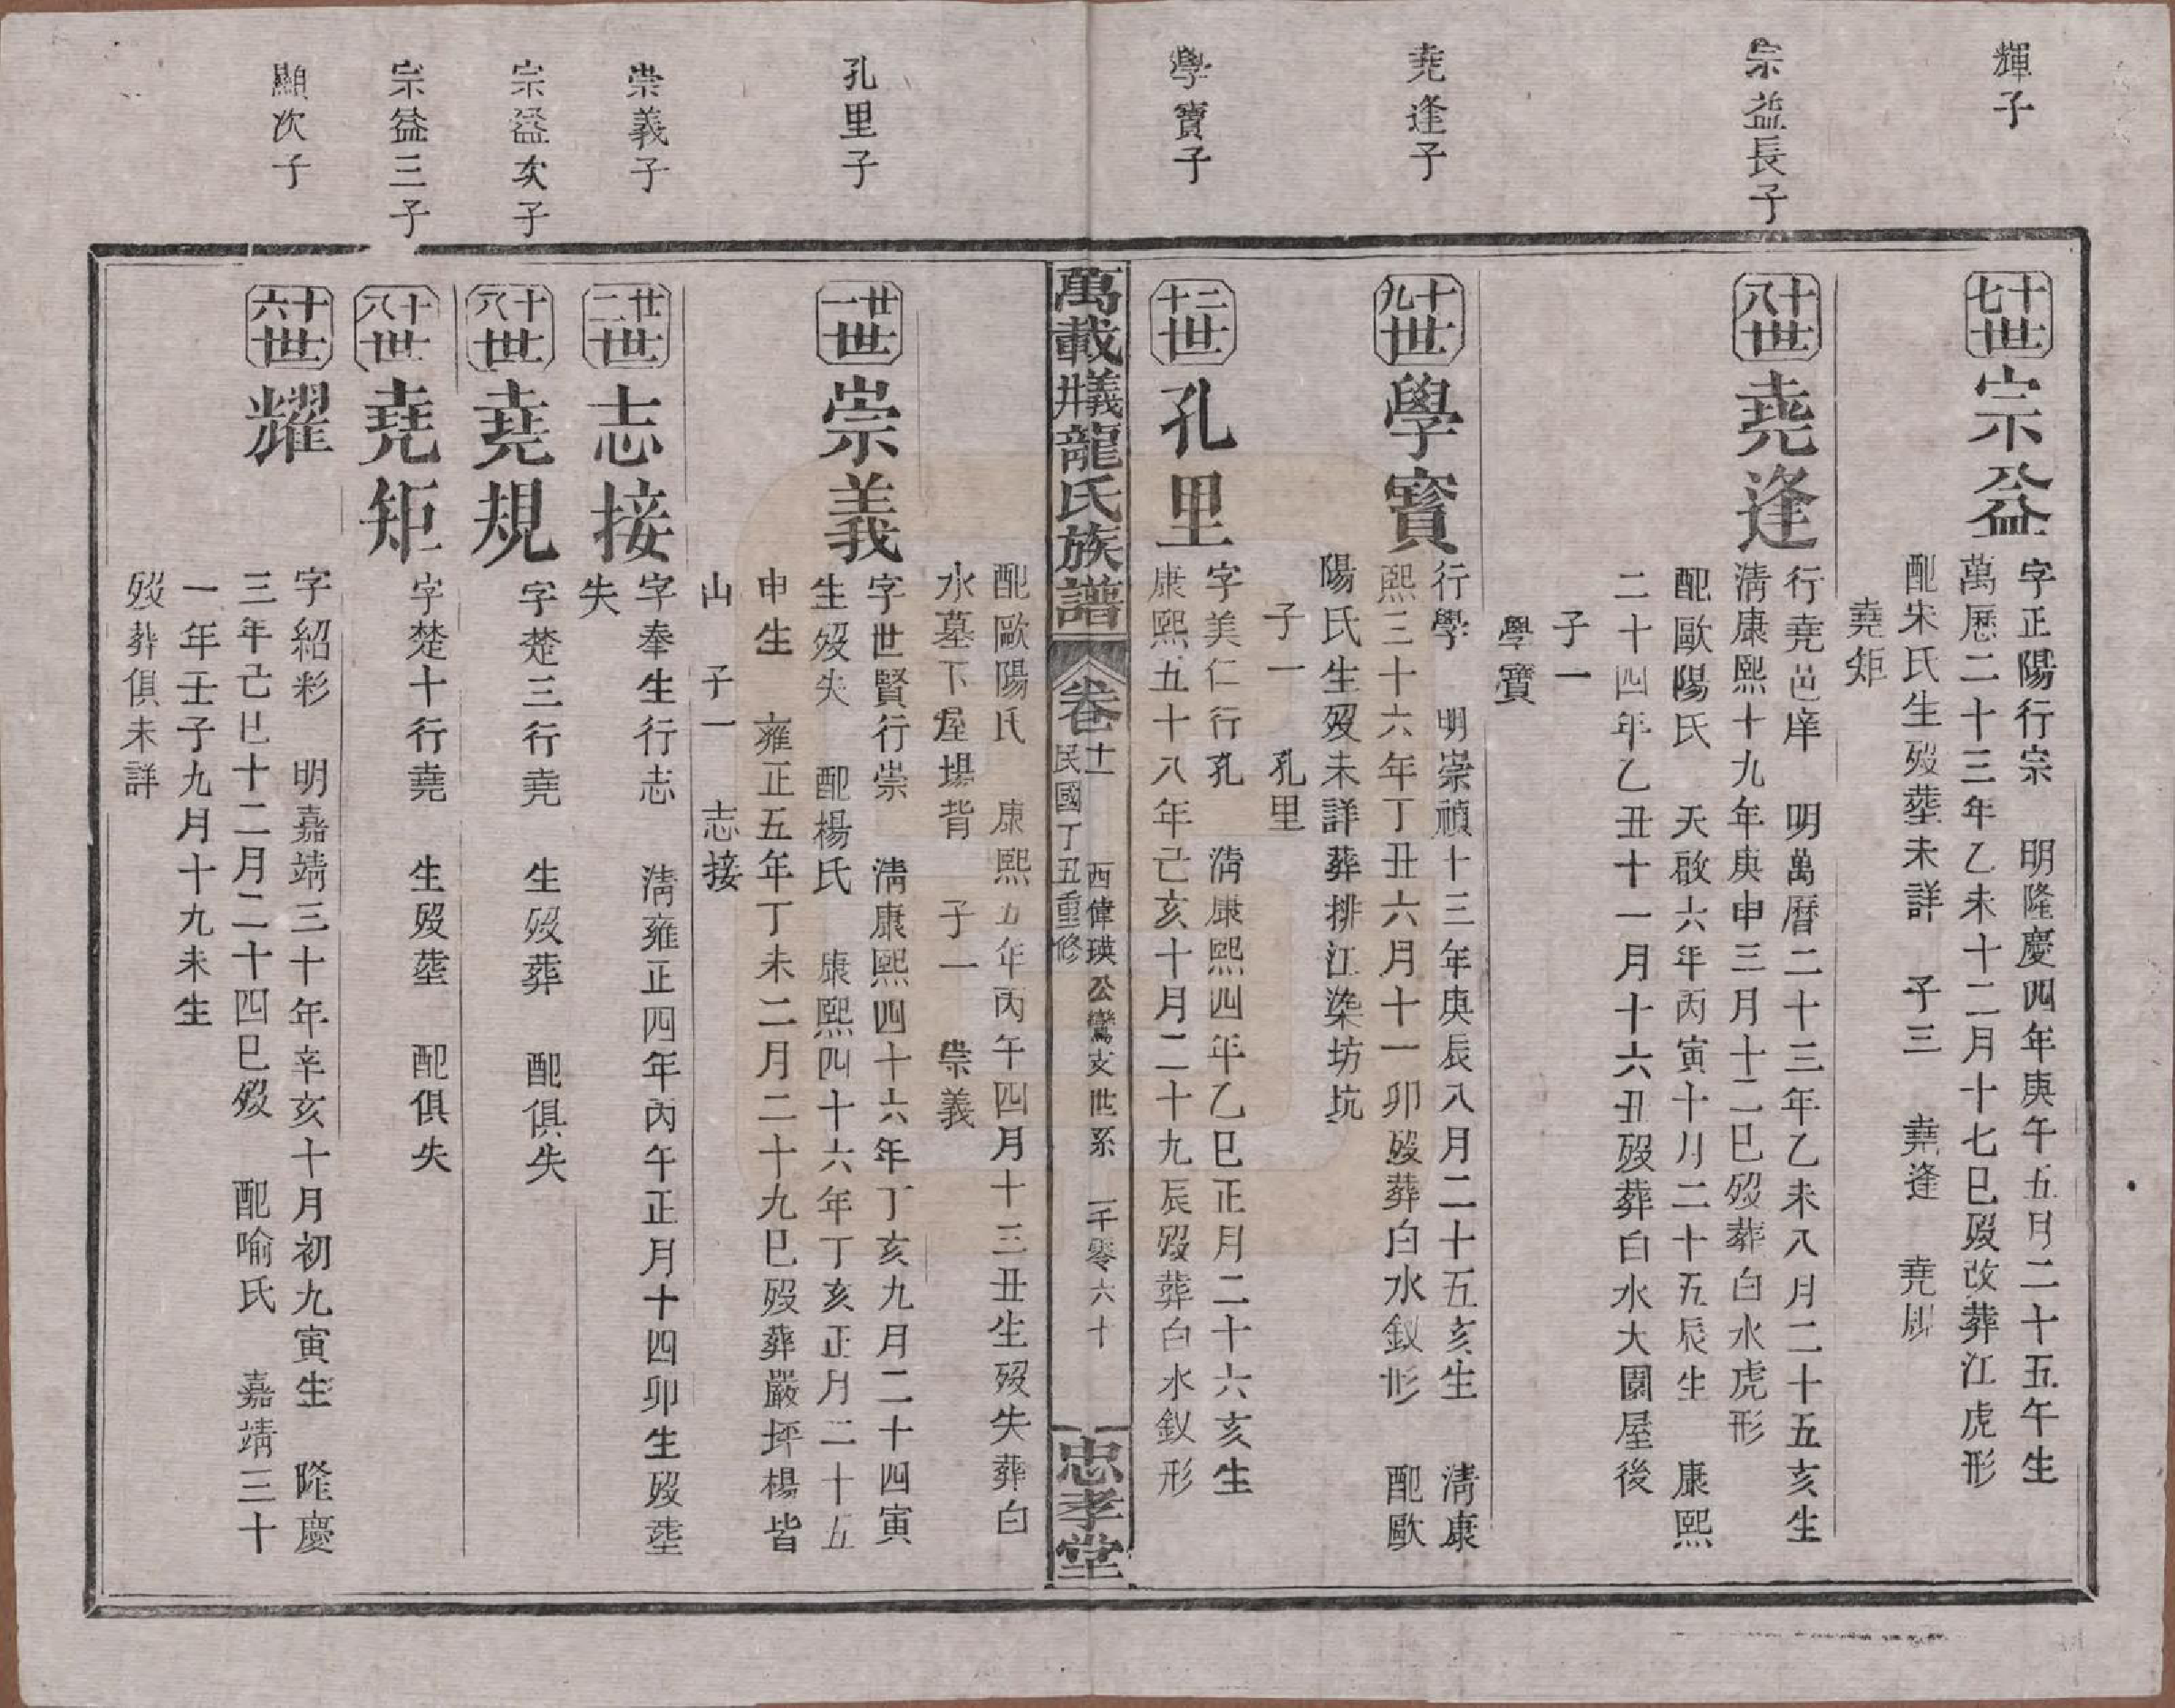 輝子
十七世
宗益
字正陽行宗 明隆慶四年庚午五月二十五午生
萬厯二十三年乙未十二月十七巳殁改葬江虎形
配朱氏生殁塟未詳 子三 堯逢 堯規
堯矩
宗益長子
十八世
堯逢
行堯邑庠 明萬曆二十三年乙未八月二十五亥生
淸康熙十九年庚申三月十二巳殁葬白水虎形
配歐陽氏 天啟六年丙寅十月二十五辰生 康熙
二十四年乙丑十一月十六丑殁葬白水大園屋後
子一
學寶
堯逢子
十九世
學寳
行學 明崇禎十三年庚辰八月二十五亥生 淸康
熙三十六年丁丑六月十一卯殁葬白水釵形 配歐
陽氏生殁未詳葬排江染坊坑
子一 孔里
學寶子
二十世
孔里
字美仁行孔 淸康熙四年乙巳正月二十六亥生
康熙五十八年己亥十月二十九辰殁葬白水釵形
萬載義井龍氏族譜
卷十一
民國丁丑重修
西偉瑛公鸞支世系 一千零六十
忠孝堂
配歐陽氏 康熙五年丙午四月十三丑生殁失葬白
水墓下屋場背 子一 崇義
孔里子
廿一世
崇義
字世賢行崇 淸康熙四十六年丁亥九月二十四寅
生殁失 配楊氏 康熙四十六年丁亥正月二十五
申生 雍正五年丁未二月二十九巳殁葬嚴坪楊皆
山 子一 志接
崇義子
廿二世
志接
字奉生行志 淸雍正四年丙午正月十四卯生殁塟
失
宗益次子
十八世
堯規
字楚三行堯 生殁葬 配俱失
宗益三子
十八世
堯矩
字楚十行堯 生殁塟 配俱失
顯次子
十六世
耀
字紹彩 明嘉靖三十年辛亥十月初九寅生 隆慶
三年己巳十二月二十四巳殁 配喻氏 嘉靖三十
一年壬子九月十九未生
殁葬俱未詳